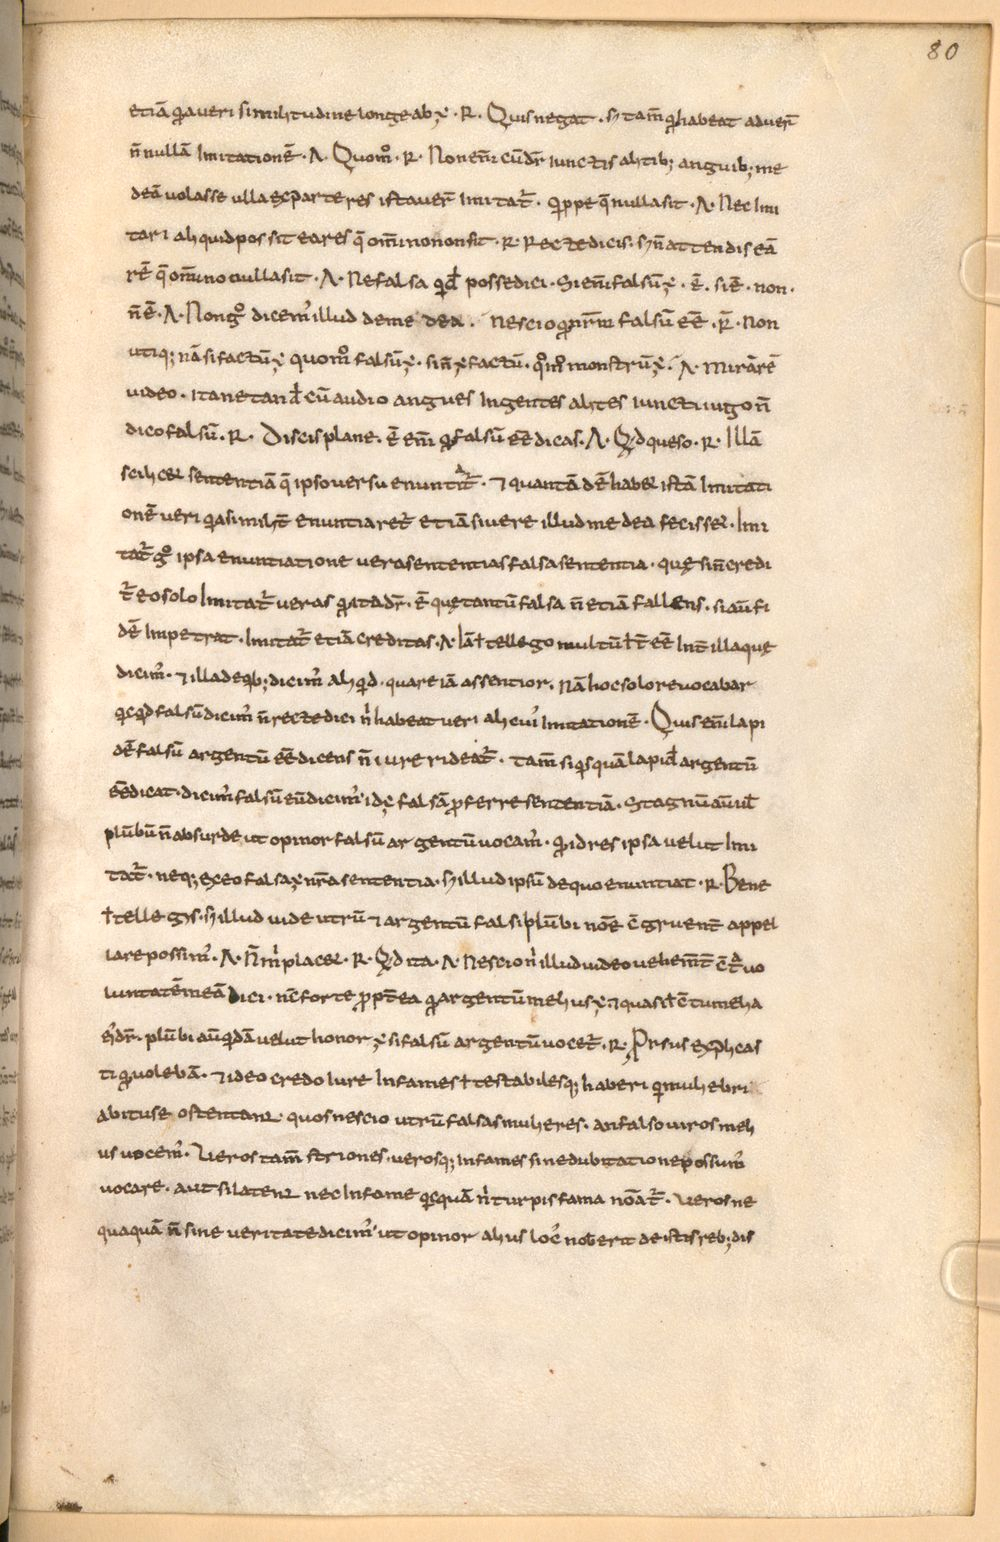 80
etiā qđ a veri similitudine longe abē · R · Quis negat · s; tam̄ qđ habeat adver̄
n̄ nullā imitationē · A · Quom̊ · R · Non enī eūdr̄ iunctis alitib; anguib; me
deā volasse ulla ex parte res ista ver̄ imitat̄ · quippe q̄ nulla sit · A · Nec imi
tari aliquid possit ea res q̄ om̄ino non sit · R · Recte dicis · s; n̄ attendis eā
rē q̄ om̄ino nulla sit · A · Ne falsa qid̄ posse dici · Si enī falsū ē · ē · si ē · non ·
n̄ ē · A · Non g̊ dicem̄ illud de medea · nescio qđ m̄r̄m falsū eē · R̄ · Non
utiq; nā si factū ē quom̊ falsū ē · si n̄ ē factū · qom̊ monstrū ē · A · Mirā rē
video · ita ne tand̄ cū audio angues ingentes alites iuncti iugo n̄
dico falsū · R · Discis plane · ē enī qđ falsū eē dicas · A · Q̄d queso · R · Illā
scilicet sententiā q̄ ipso versu enuntiat̄ · & quantā dē habet istā imitati
onē veri qa similit̄ enuntiaret̄ etiā si vere illud medea fecisset · Imi
tat̄ g̊ ipsa enuntiatione veras ententias falsa sententia · quę si n̄ credi
t̄ eo solo imitat̄ veras qđ ita dr̄ · ē quę tantū falsa n̄ etiā fallens · si aū fi
dē impetrat · imitat̄ etiā creditas · A · Iā intellego multū int̄ eē int̄ illa quę
dicim̄ · & illa de qb; dicim̄ aliqid · quare iā assentior · nā hoc solo revocabar
qcqd falsū dicim̄ n̄ recte dici n̄ habeat veri alicui imitationē · Quis enī lapi
dē falsū argentū eē dicens n̄ iure rideat̄ · tam̄ si qisquā lapid̄ argentū
eē dicat · dicim̄ falsū eū dicim̄ id ē falsā proferre sententiā · Stagnū aū ul̄
plūbū n̄ absurde ut opinor falsū argentū vocam̄ · qđ id res ipsa velut imi
tat̄ · neq; ex eo falsa ē nr̄a sententia · s; illud ipsū de quo enuntiat · R · Bene
intellegis · s; illud vide utrū & argentū falsi plūbi nōe cōgruent̄ appel
lare possim̄ · A · N̄ m̄ placet · R · Q̄d ita · A · Nescio n̄ illud video vehem̄t̄ cōtra vo
luntatē meā dici · R · Ne forte propt̄ea qđ argentū melius ē & quasi in cōtumelia
ei dr̄ · plūbi aū qdā velut honor ē si falsū argentū vocet̄ · R · Prsus explicas
ti qđ volebā · & ideo credo iure infames intestabilesq; haberi qi muliebri
abitu se ostentant · quos nescio utrū falsas mulieres · an falso viros meli
us vocem̄ · Veros tam̄ striones · verosq; infames sine dubitatione possum̄
vocare · aut si latent nec infame qcquā n̄ turpis fama nōat̄ · veros ne
quaquā n̄ sine veritate dicim̄ ut opinor alius loc̄ nob erit de istis reb; dis